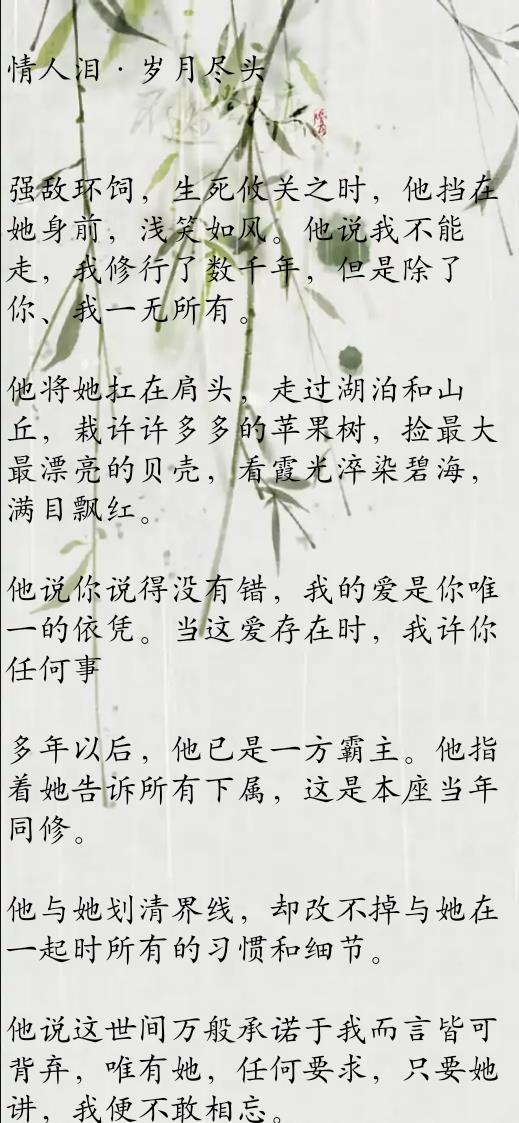 情人泪·岁月尽头
强敌环饲，生死攸关之时，他挡在
她身前，浅笑如风。他说我不能
走，我修行了数千年，但是除了
你、我一无所有。
他将她扛在肩头，走过湖泊和山
丘，栽许许多多的苹果树，捡最大
最漂亮的贝壳，看霞光淬染碧海，
满目飘红。
他说你说得没有错，我的爱是你唯
一的依凭。当这爱存在时，我许你
任何事
多年以后，他已是一方霸主。他指
着她告诉所有下属，这是本座当年
同修。
他与她划清界线，却改不掉与她在
一起时所有的习惯和细节。
他说这世间万般承诺于我而言皆可
背弃，唯有她，任何要求，只要她
讲，我便不敢相忘。